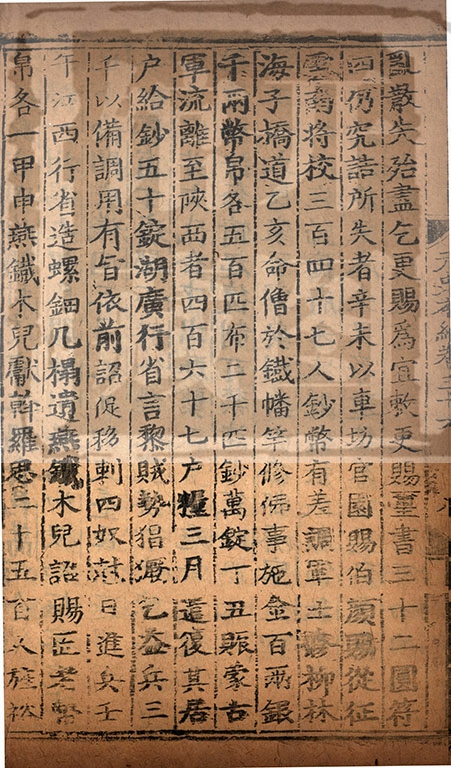 元史本紀卷三十六
亂散失殆盡乞更賜爲宜敕更賜璽書三十二圓符
四仍究詰所失者辛未以車坊官園賜伯顏賜從征
雲南將校三百四十七人鈔幣有差調軍士修柳林
海子橋道乙亥命僧於鐵幡竿修佛事施金百兩銀
千兩幣帛各五百匹布二千匹鈔萬錠丁丑賑蒙古
軍流離至陝西者四百六十七户糧三月遣復其居
户給鈔五十錠湖廣行省言黎賊勢猖獗乞益兵三
千以備調用有旨依前詔促移剌四奴
日進兵壬
午江西行省造螺鈿几榻遺燕鐵木兒詔賜匠者幣
帛各一甲申燕鐵木兒獻斡羅思二十五百人